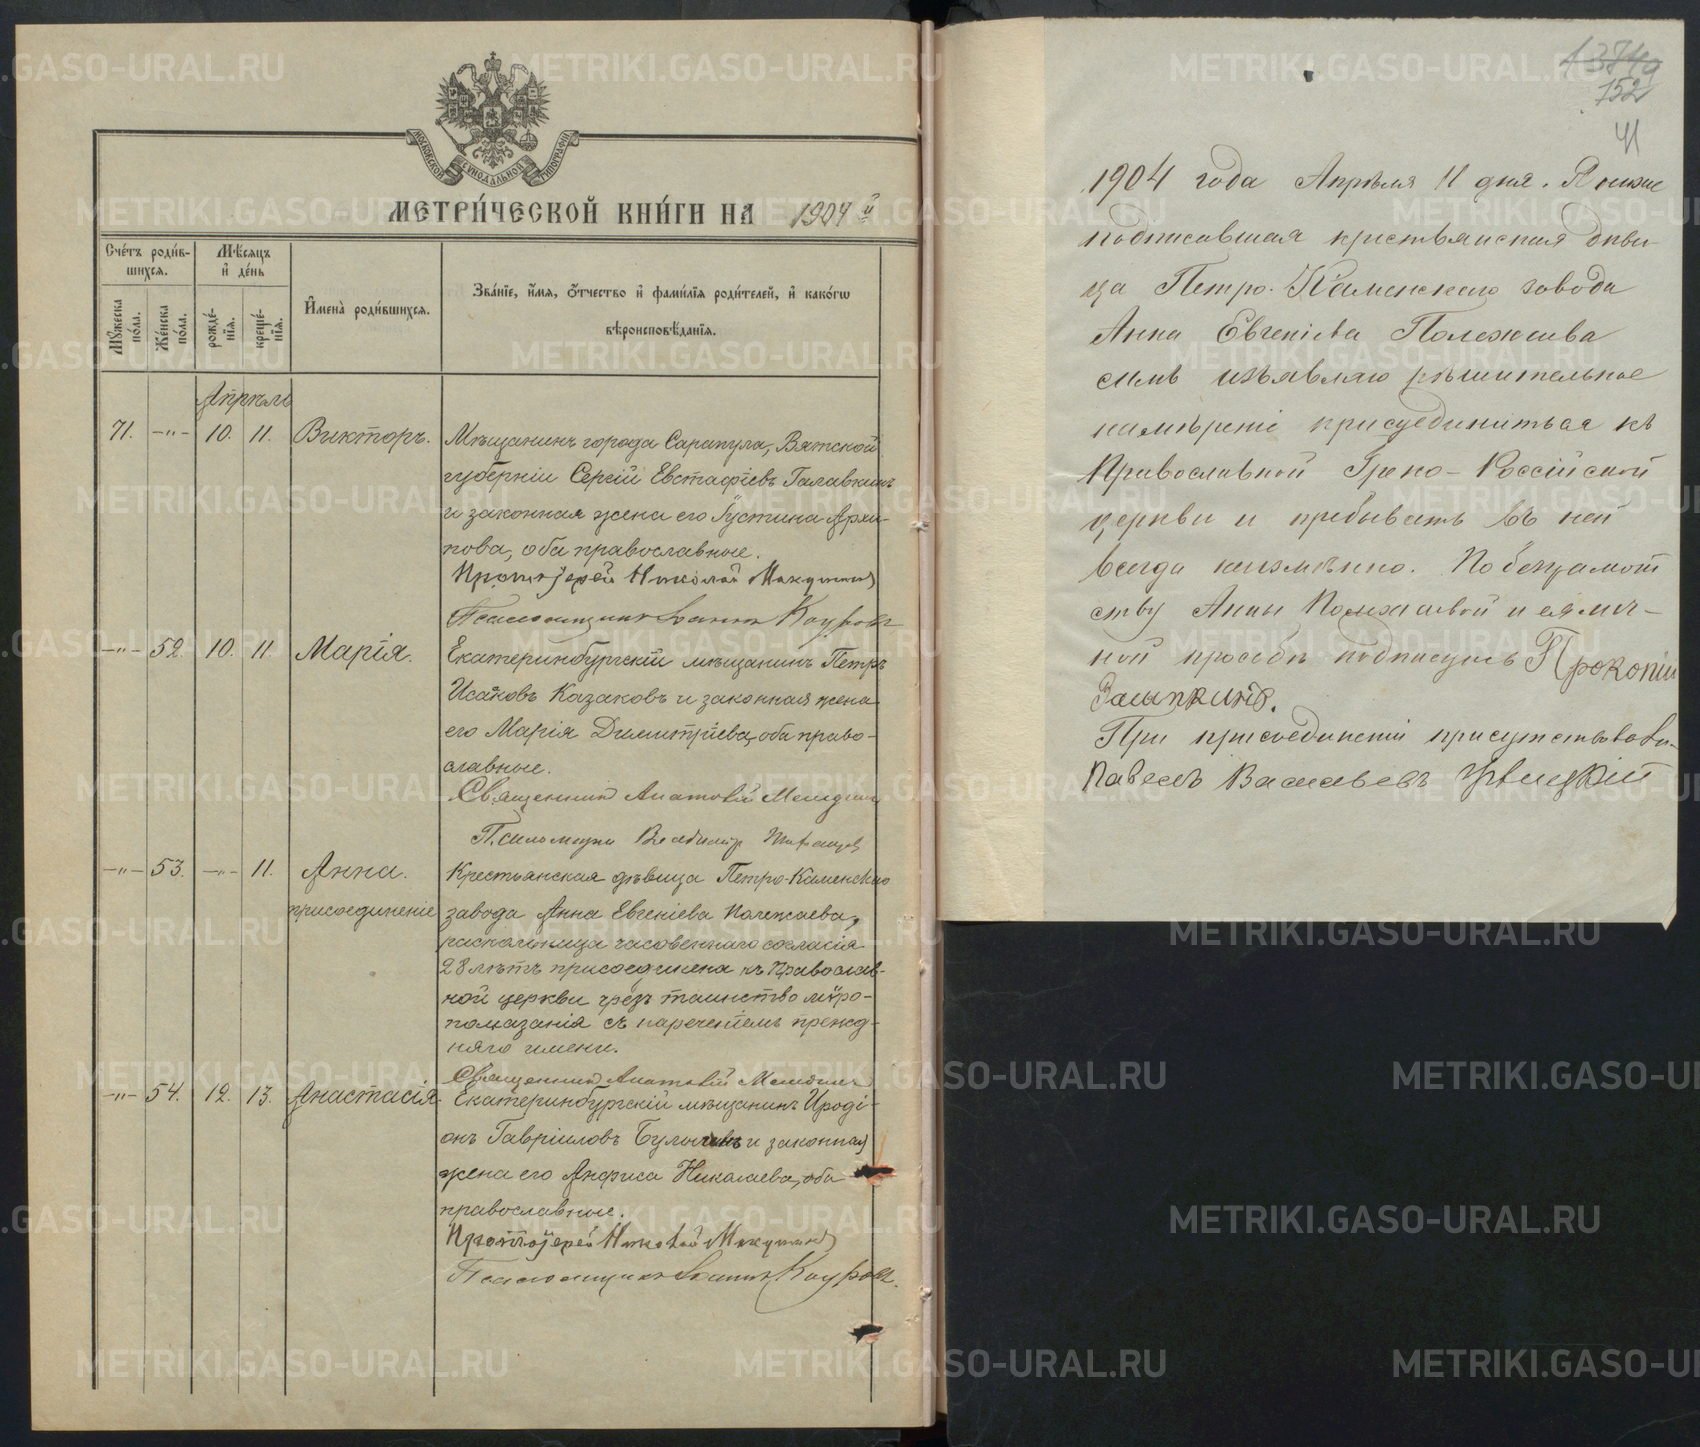 МОСКОВСКОЙ СѴНОДАЛЬНОЙ ТИПОГРАФІИ
МЕТРИ́ЧЕСКОЙ КНИ́ГИ НА 1904 й
Сче́тъ роди́в-
шихся.
Мѣ́сяцъ
и҆ де́нь
Мꙋ́жеска
по́ла.
Же́нска
по́ла.
рожде́-
нїѧ.
креще́-
нїѧ.
И҆мена̀ роди́вшихся.
Зва́нїе, и҆́мя, ѻ҆́тчество и҆ фами́лїѧ роди́телей, и҆ како́гѡ
вѣроисповѣ́данїѧ.
Апрѣль
71. —„— 10. 11. Викторъ.
Мѣщанинъ города Сарапула, Вятской
губерніи Сергій Евстафіевъ Галавкинъ
и законная жена его Іустина Архи-
пова, оба православные.
Протоіерей Николай
Псаломщикъ Іоаннъ Кауровъ
—„— 52. 10. 11. Марія.
Екатеринбургскій мѣщанинъ Петръ
Исаковъ Казаковъ и законная жена
его Марія Димитріева, оба право-
славные.
Священникъ Анатолій
Псаломщикъ Владиміръ
—„— 53. —„— 11. Анна.
присоединеніе
Крестьянская дѣвица Петро-Каменскаго
завода Анна Евгеніева Полежаева,
раскольница часовеннаго согласія
28 лѣтъ присоединена къ Православ-
ной церкви чрезъ таинство мѵро-
помазанія съ нареченіемъ прежд-
няго имени.
Священникъ Анатолій
—„— 54. 12. 13. Анастасія.
Екатеринбургскій мѣщанинъ Ироді-
онъ Гавріиловъ и законная
жена его Анфиса Николаева, оба
православные.
Протоіерей Николай
Псаломщикъ Іоаннъ Кауровъ.
152
41
1904 года Апрѣля 11 дня. Я ниже
подписавшая крестьянская дѣви-
ца Петро-Каменскаго завода
Анна Евгеніева Полежаева
симъ изъявляю рѣшительное
намѣреніе присоединиться къ
Православной Греко-Россійской
церкви и пребывать въ ней
всегда неизмѣнно. По безграмот
ству Анны Полежаевой и ея лич-
ной просьбѣ подписуюсь Прокопій
При присоединеніи присутствовали
Павелъ Васильевъ
METRIKI.GASO-URAL.RU